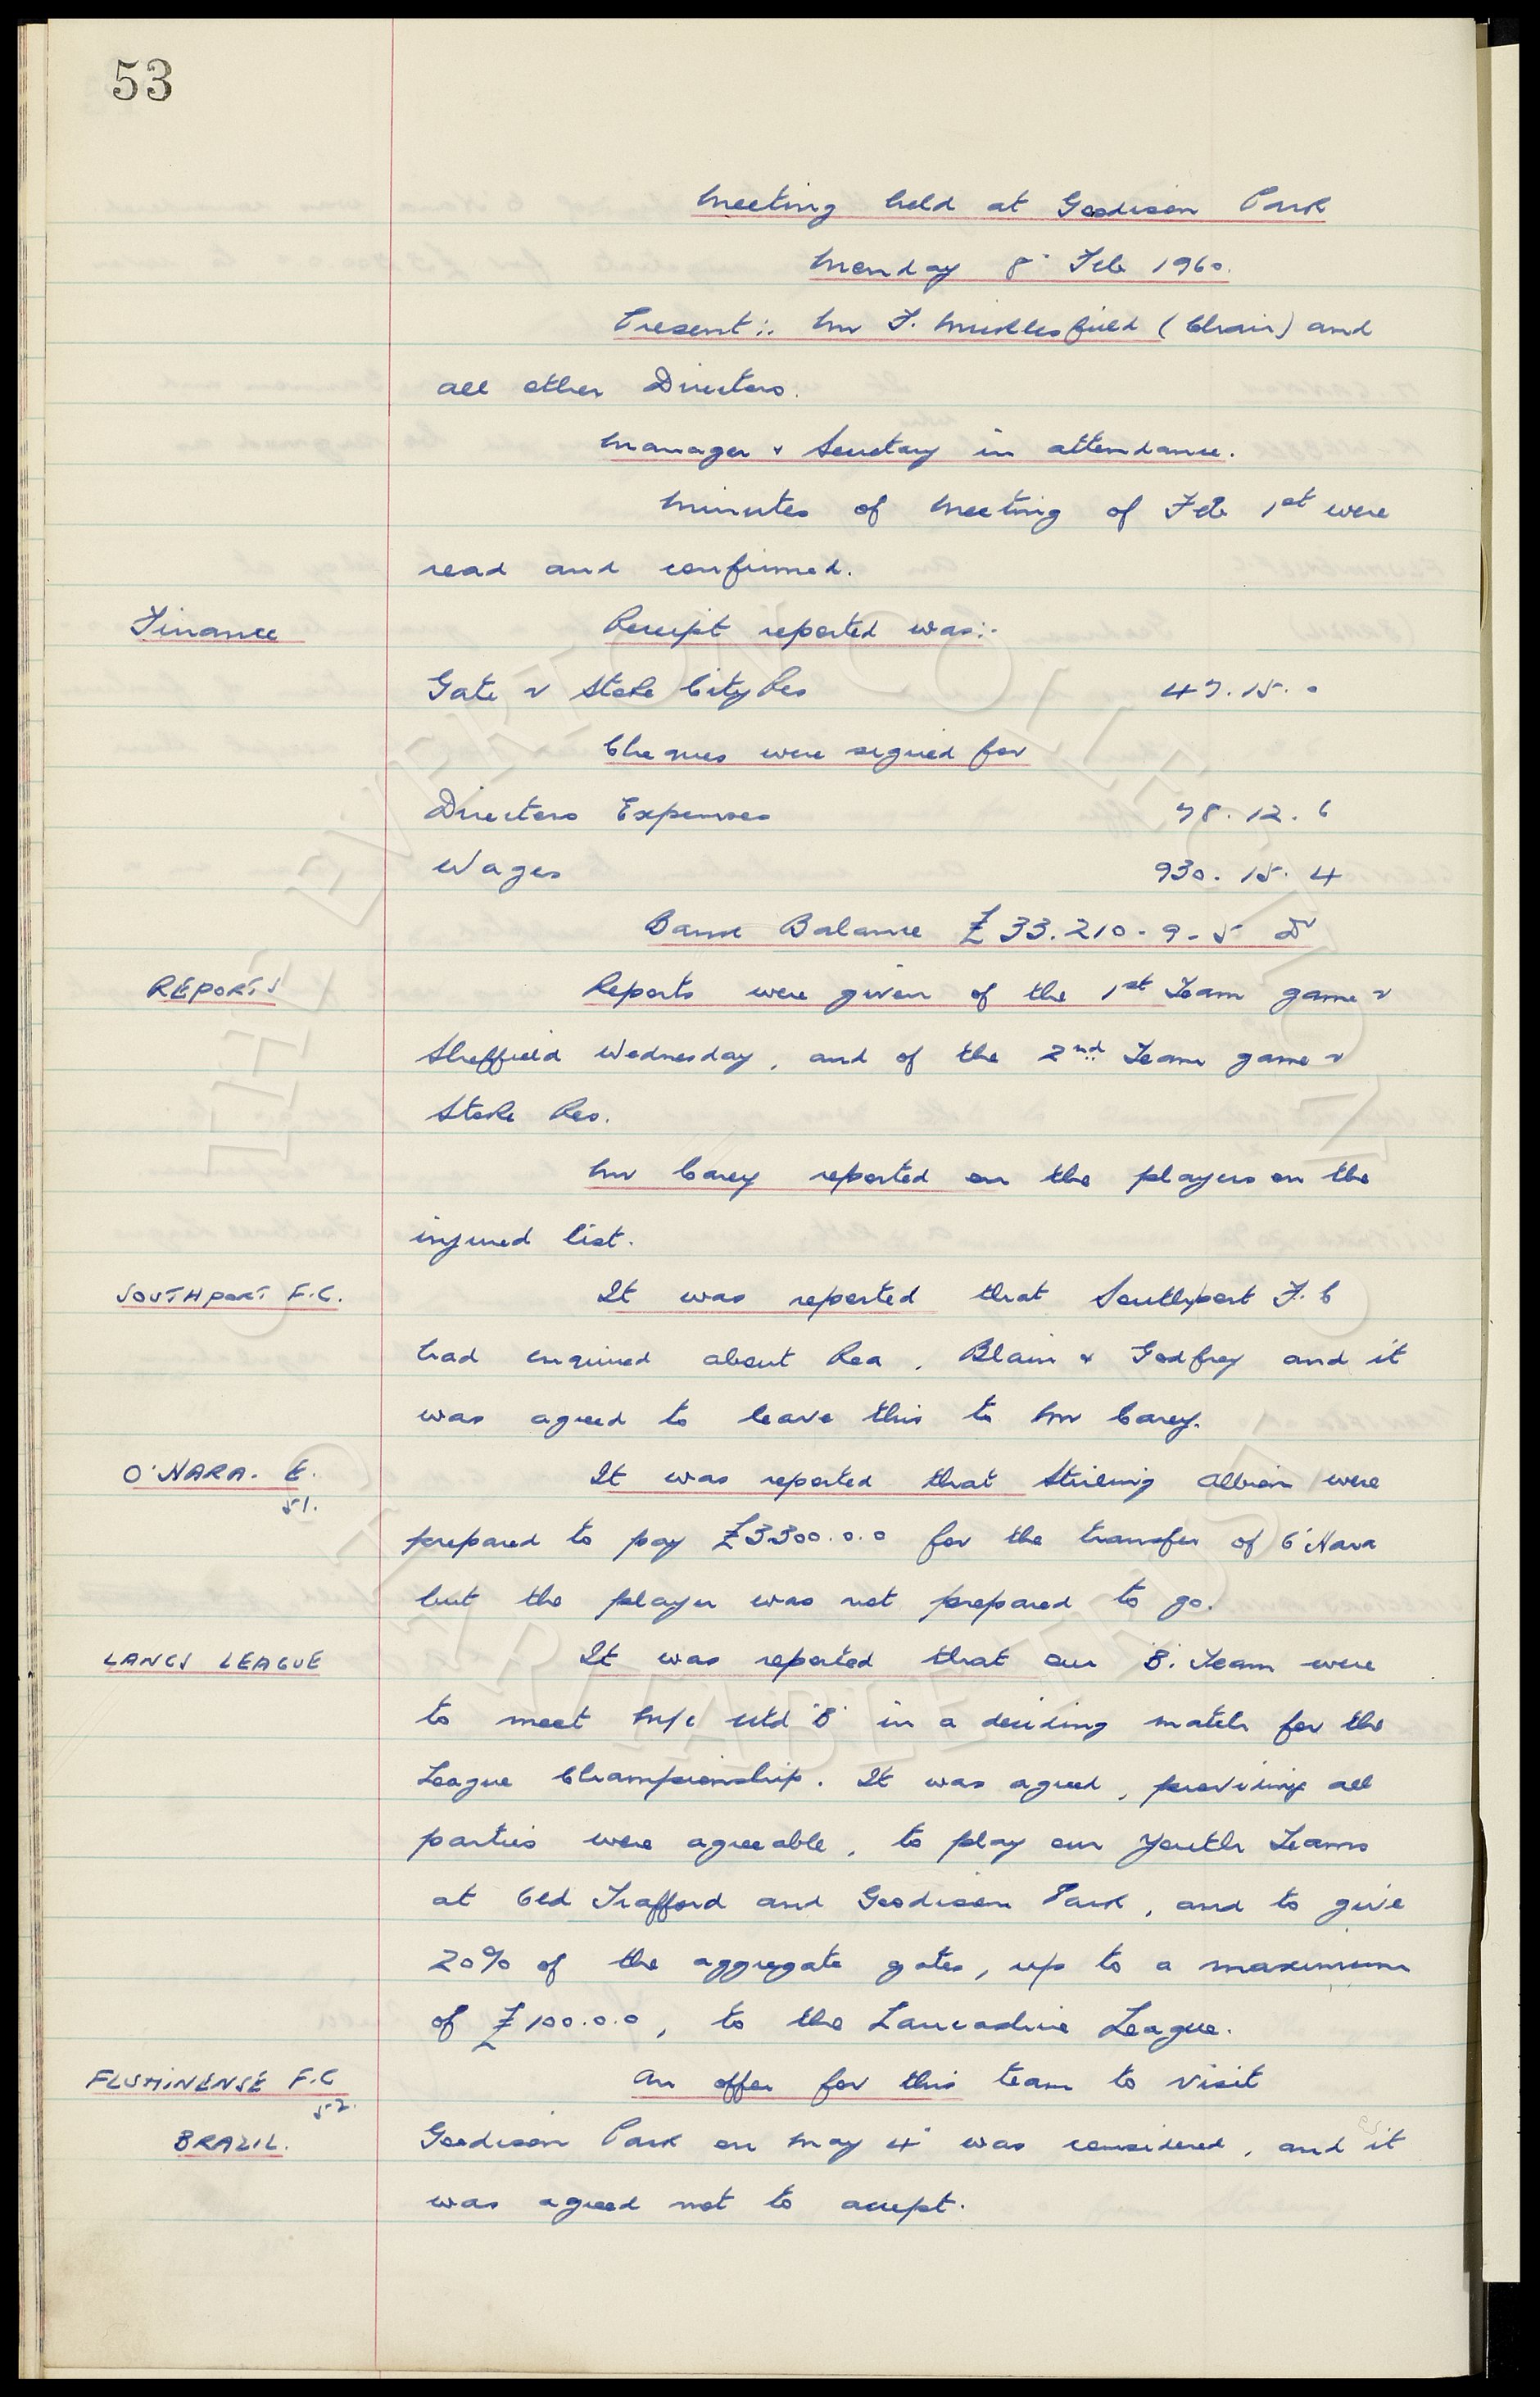 53
Meeting held at Goodison Park
Monday 8" Feb 1960.
Present:. Mr F. Micklesfield (Chair) and
all other Directors.
Manager & Secretary in attendance.
Minutes of Meeting of Feb 1st were
read and confirmed.
Finance Receipt reported was:-
Gate v Stoke City Res 47.15.0
Cheques were signed for
Directors Expenses 78.12.6
Wages 930.15.4
Bank Balance £33.210-9-5 Dr
REPORTS Reports were given of the 1st Team game v
Sheffield Wednesday, and of the 2nd Team game v
Stoke Res.
Mr Carey reported on the players on the
injured list.
SOUTHPORT F.C. It was reported that Southport F.C
had enquired about Rea, Blain & Godfrey and it
was agreed to leave this to Mr Carey.
O'HARA. E. It was reported that Stirling Albion were
51.
prepared to pay £3300.0.0 for the transfer of O'Hara
but the player was not prepared to go.
LANCS LEAGUE It was reported that our 'B' Team were
to meet M/c Utd 'B' in a deciding match for the
League Championship. It was agreed, providing all
parties were agreeable, to play our Youth Teams
at Old Trafford and Goodison Park, and to give
20% of the aggregate gates, up to a maximum
of £100.0.0, to the Lancashire League.
FLUMINENSE F.C An offer for this team to visit
52.
BRAZIL. Goodison Park on May 4" was considered, and it
was agreed not to accept.
THE EVERTON COLLECTION
CHARITABLE TRUST